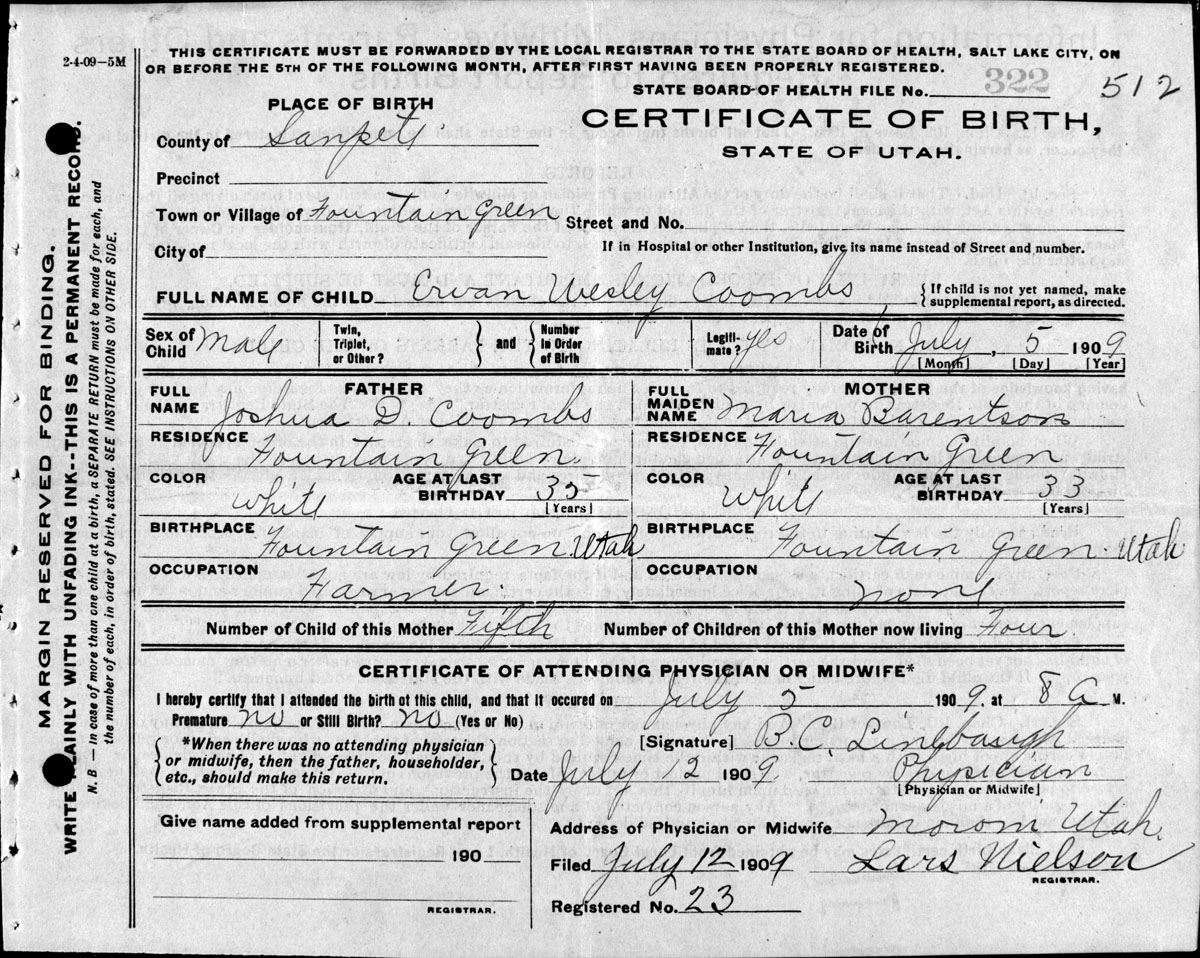 THIS CERTIFICATE MUST BE FORWARDED BY THE LOCAL REGISTRAR TO THE STATE BOARD OF HEALTH, SALT LAKE CITY, ON
2-4-09—5M
OR BEFORE THE 5TH OF THE FOLLOWING MONTH, AFTER FIRST HAVING BEEN PROPERLY REGISTERED.
STATE BOARD OF HEALTH FILE No. 512
322
PLACE OF BIRTH
CERTIFICATE OF BIRTH,
County of Sanpete
STATE OF UTAH.
Precinct
Town or Village of Fountain Green Street and No.
City of If in Hospital or other Institution, give its name instead of Street and number.
FULL NAME OF CHILD Ervan Wesley Coombs { If child is not yet named, make supplemental report, as directed.
Sex of Child Male Twin, Triplet, or Other? } and { Number in Order of Birth Legiti-mate? yes Date of Birth July, 5 1909
[Month] [Day] [Year]
FATHER MOTHER
FULL NAME Joshua D. Coombs FULL MAIDEN NAME Maria Barentson
RESIDENCE Fountain Green RESIDENCE Fountain Green
COLOR White AGE AT LAST BIRTHDAY 35 [Years] COLOR White AGE AT LAST BIRTHDAY 33 [Years]
BIRTHPLACE Fountain Green Utah BIRTHPLACE Fountain Green Utah
OCCUPATION Farmer OCCUPATION none
Number of Child of this Mother Fifth Number of Children of this Mother now living Four
CERTIFICATE OF ATTENDING PHYSICIAN OR MIDWIFE*
I hereby certify that I attended the birth of this child, and that it occured on July 5 1909, at 8 a M.
Premature no or Still Birth? no (Yes or No)
[Signature] B.C. Linebaugh
{ *When there was no attending physician or midwife, then the father, householder, etc., should make this return. }
Date July 12 1909 Physician
[Physician or Midwife]
Give name added from supplemental report
190
REGISTRAR.
Address of Physician or Midwife Moroni Utah.
Filed July 12 1909 Lars Nielson
REGISTRAR.
Registered No. 23
MARGIN RESERVED FOR BINDING.
WRITE PLAINLY WITH UNFADING INK--THIS IS A PERMANENT RECORD.
N. B — In case of more than one child at a birth, a SEPARATE RETURN must be made for each, and
the number of each, in order of birth, stated. SEE INSTRUCTIONS ON OTHER SIDE.